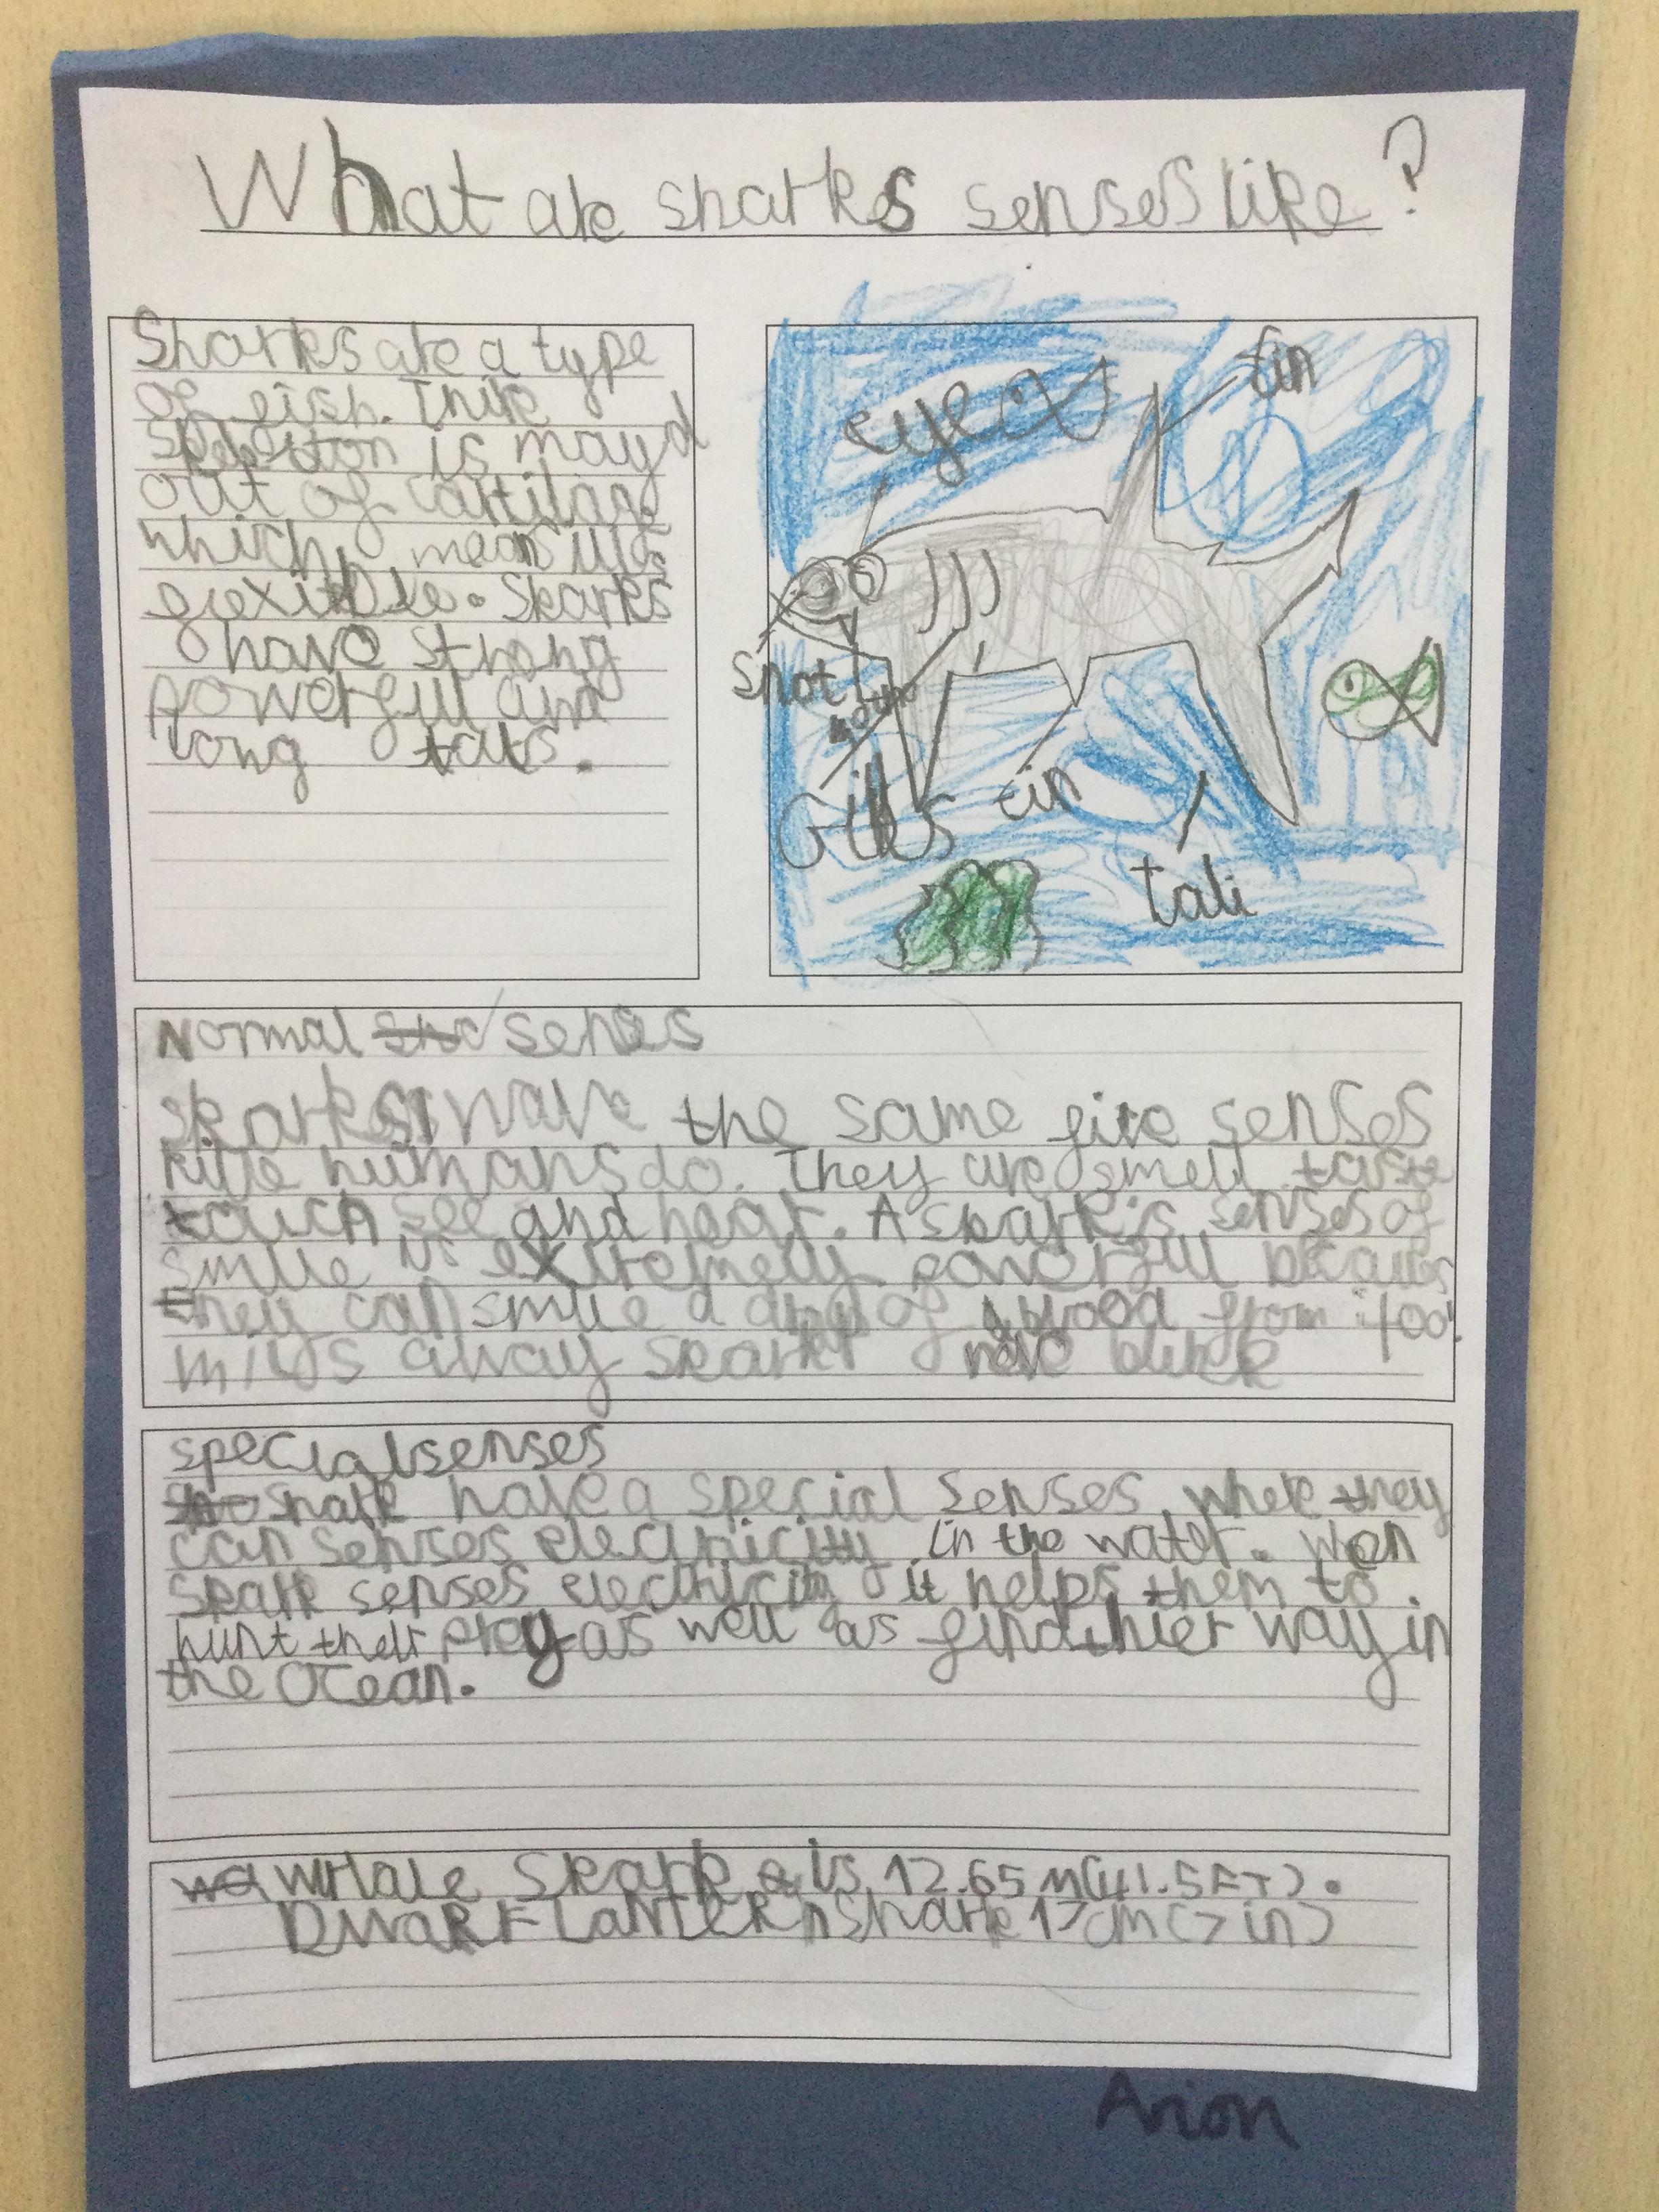 What are sharks senses like?
Sharks are a type
of fish. Thire
is mayd
out of cartilag
which means
Sharks
have strong
powerful and
long tails.
eye
fin
snot
Gills
fin
tali
Normal senses
sharks have the same five senses
like humans do. They are smell taste
touch see and hear. A shark's senses of
smile is extremely powerful
they can smile a drop of blood from 400
miles away shark
special senses
shark have a special senses where they
can senses electricity in the water. wen
shark senses electricity it helps them to
hunt their prey as well as find thier way in
the ocean.
WHale Shark is 12.65 M(41.5FT).
DWARF LaNTERn shark 17cm (7 in)
Arion